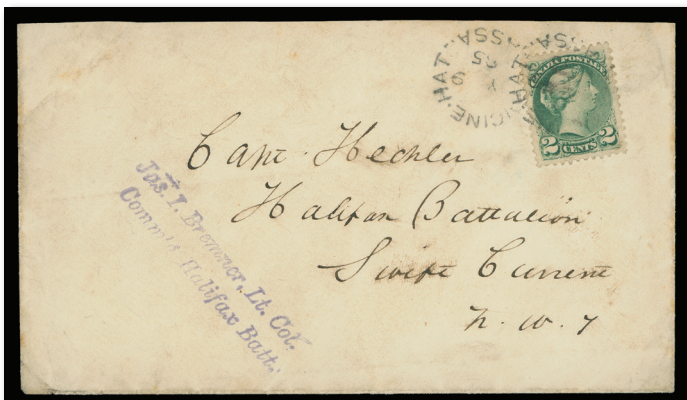 MEDICINE-HAT ASSA
9
85
CANADA POSTAGE
2 CENTS 2
Capt. Hechler
Halifax Battalion
Swift Current
N. W. T
Jas. J. Bremner, Lt. Col.
Comm'g Halifax Batt.